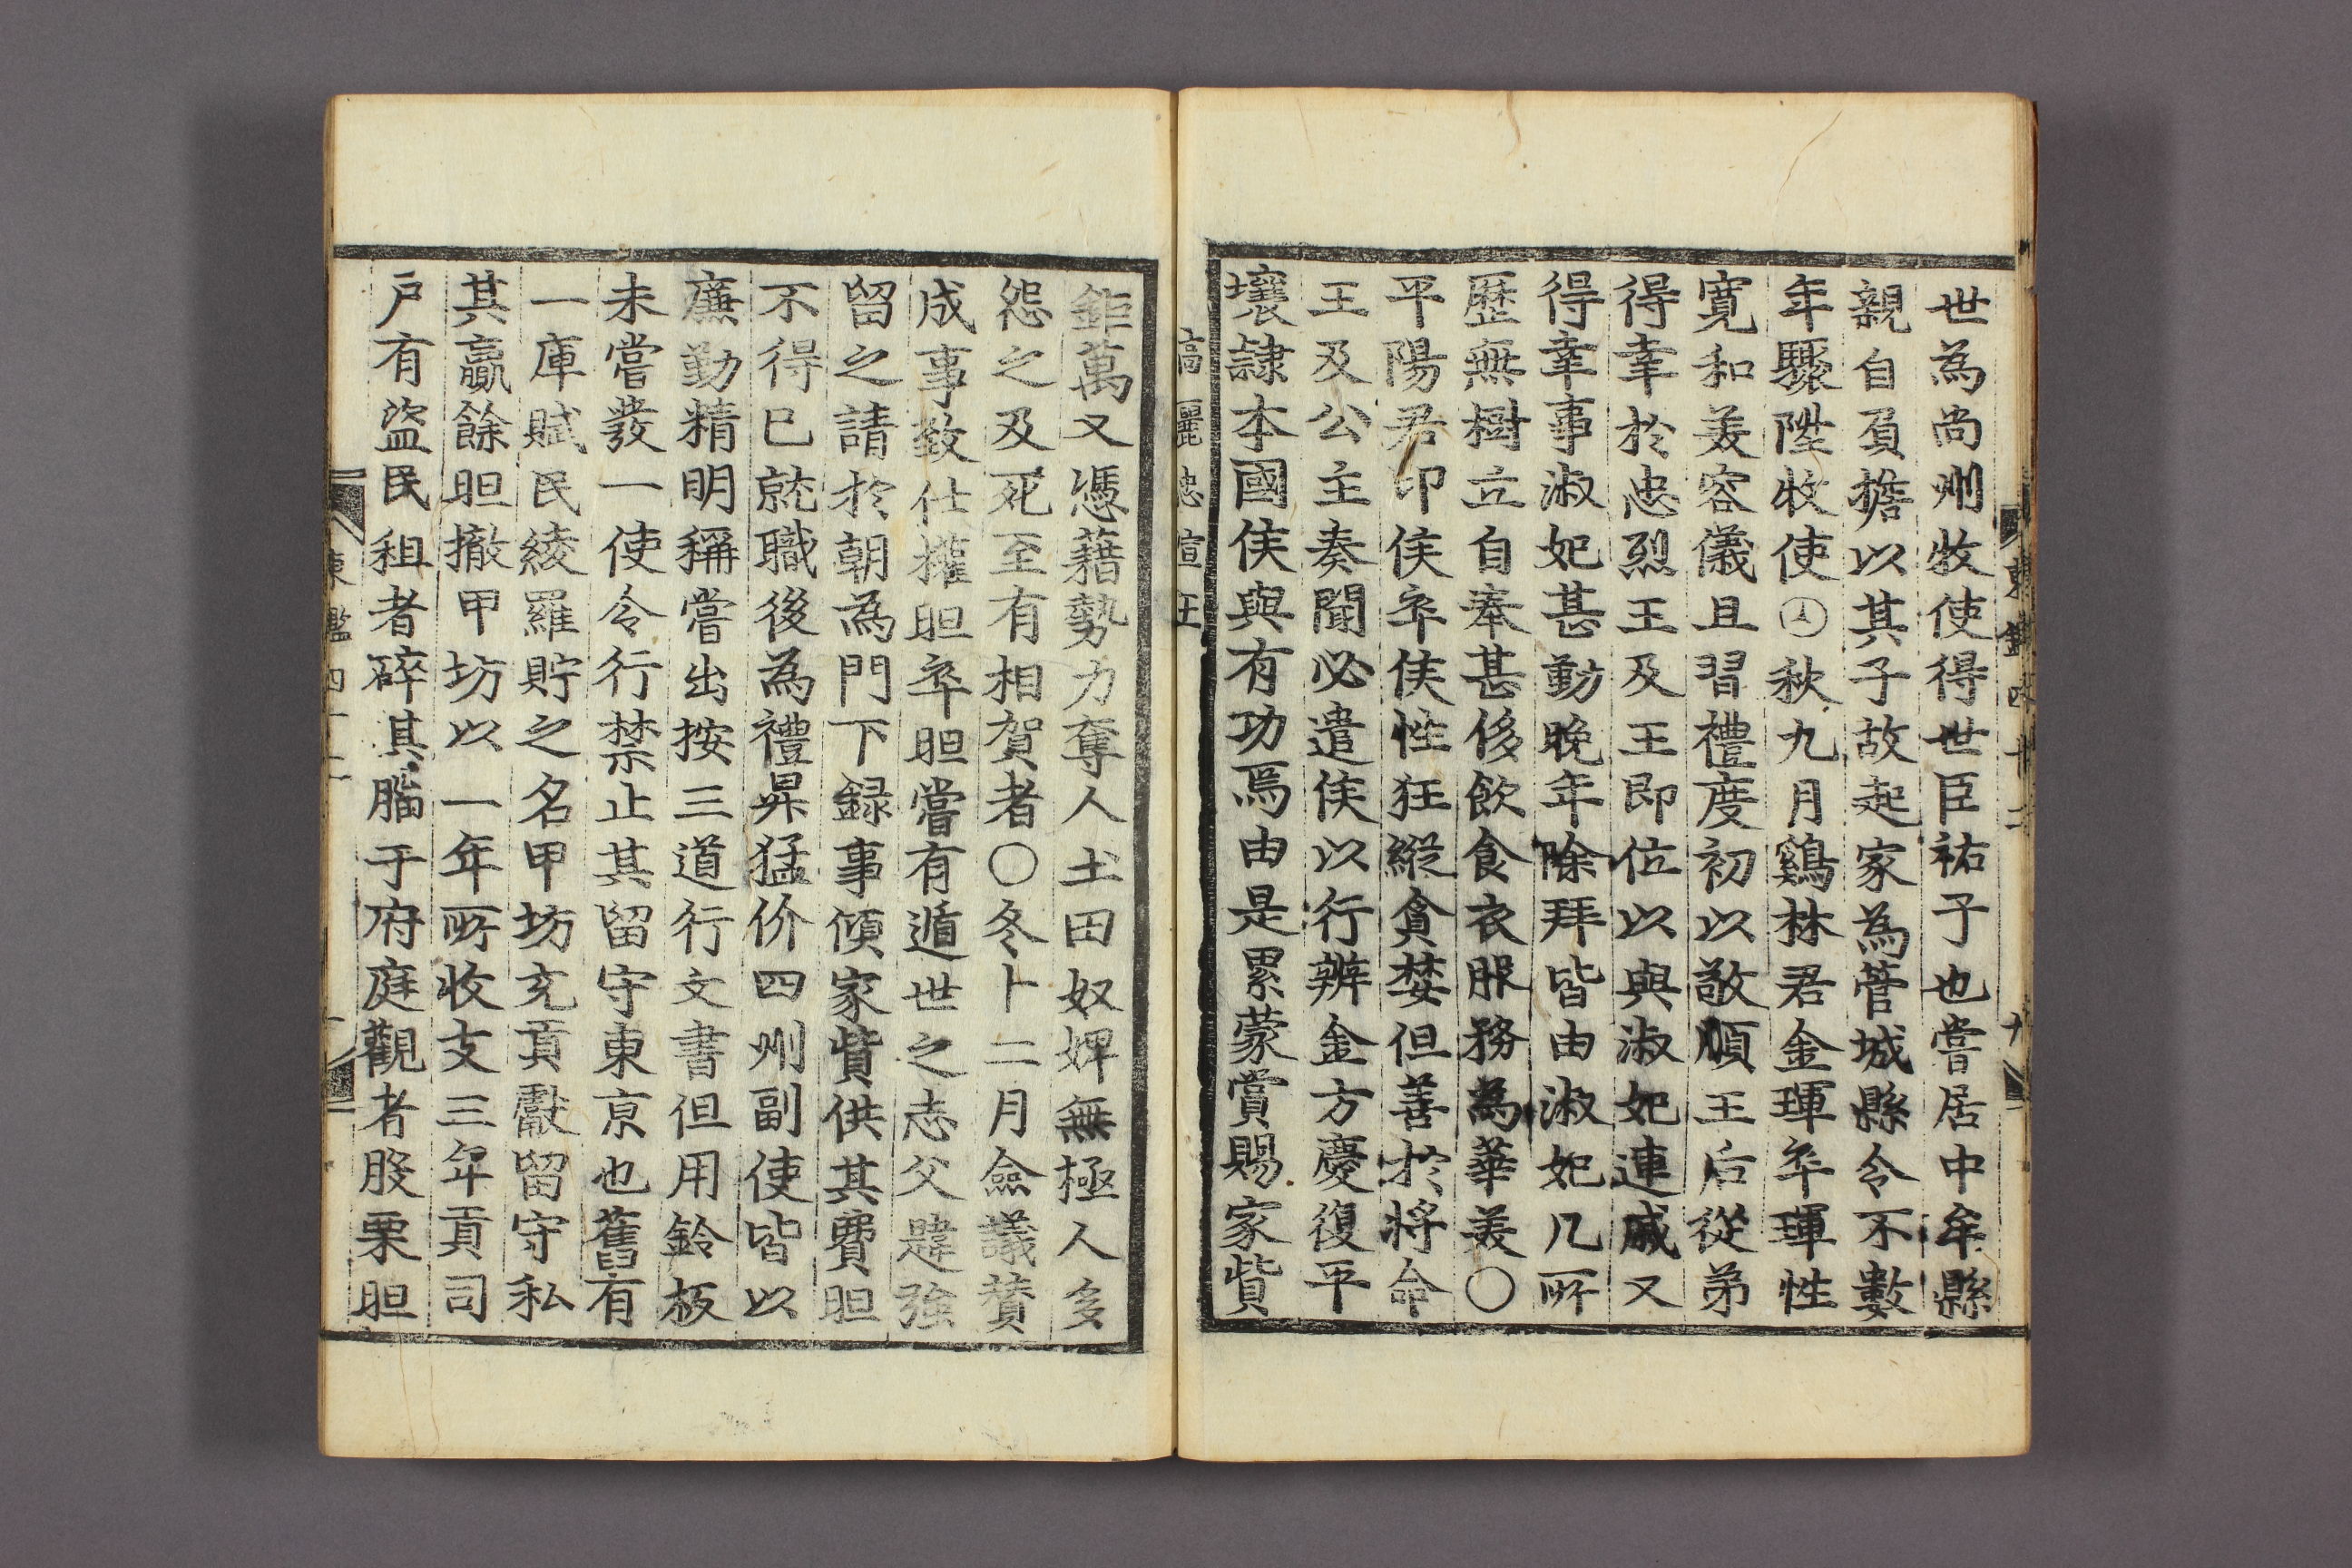 世為尙州牧使得世臣祐子也嘗居中牟縣
親自負擔以其子故起家為菅城縣令不數
年驟陞牧使○秋九月鷄林君金琿卒琿性
寬和美容儀且習禮度初以敬順王后從弟
得幸於忠烈王及王即位以與淑妃連戚又
得幸事淑妃甚勤晩年除拜皆由淑妃凡所
歷無樹立自奉甚侈飮食衣服務為華美○
平陽君印侯卒侯性狂縱貪婪但善於將命
王及公主奏聞必遣侯以行辨金方慶復平
壤隷本國侯與有功焉由是累蒙賞賜家貲
高麗忠宣王
鉅萬又憑藉勢力奪人土田奴婢無極人多
怨之及死至有相賀者○冬十二月僉議贊
成事致仕權㫜卒㫜嘗有遁世之志父韙強
留之請於朝為門下錄事傾家貲供其費㫜
不得已就職後為禮昇猛价四州副使皆以
廉勤精明稱嘗出按三道行文書但用鈴板
未嘗發一使令行禁止其留守東京也舊有
一庫賦民綾羅貯之名甲坊充貢獻留守私
其贏餘㫜撤甲坊以一年所收支三年貢司
戶有盜民租者碎其腦于府庭觀者股栗㫜
東鑑四十二